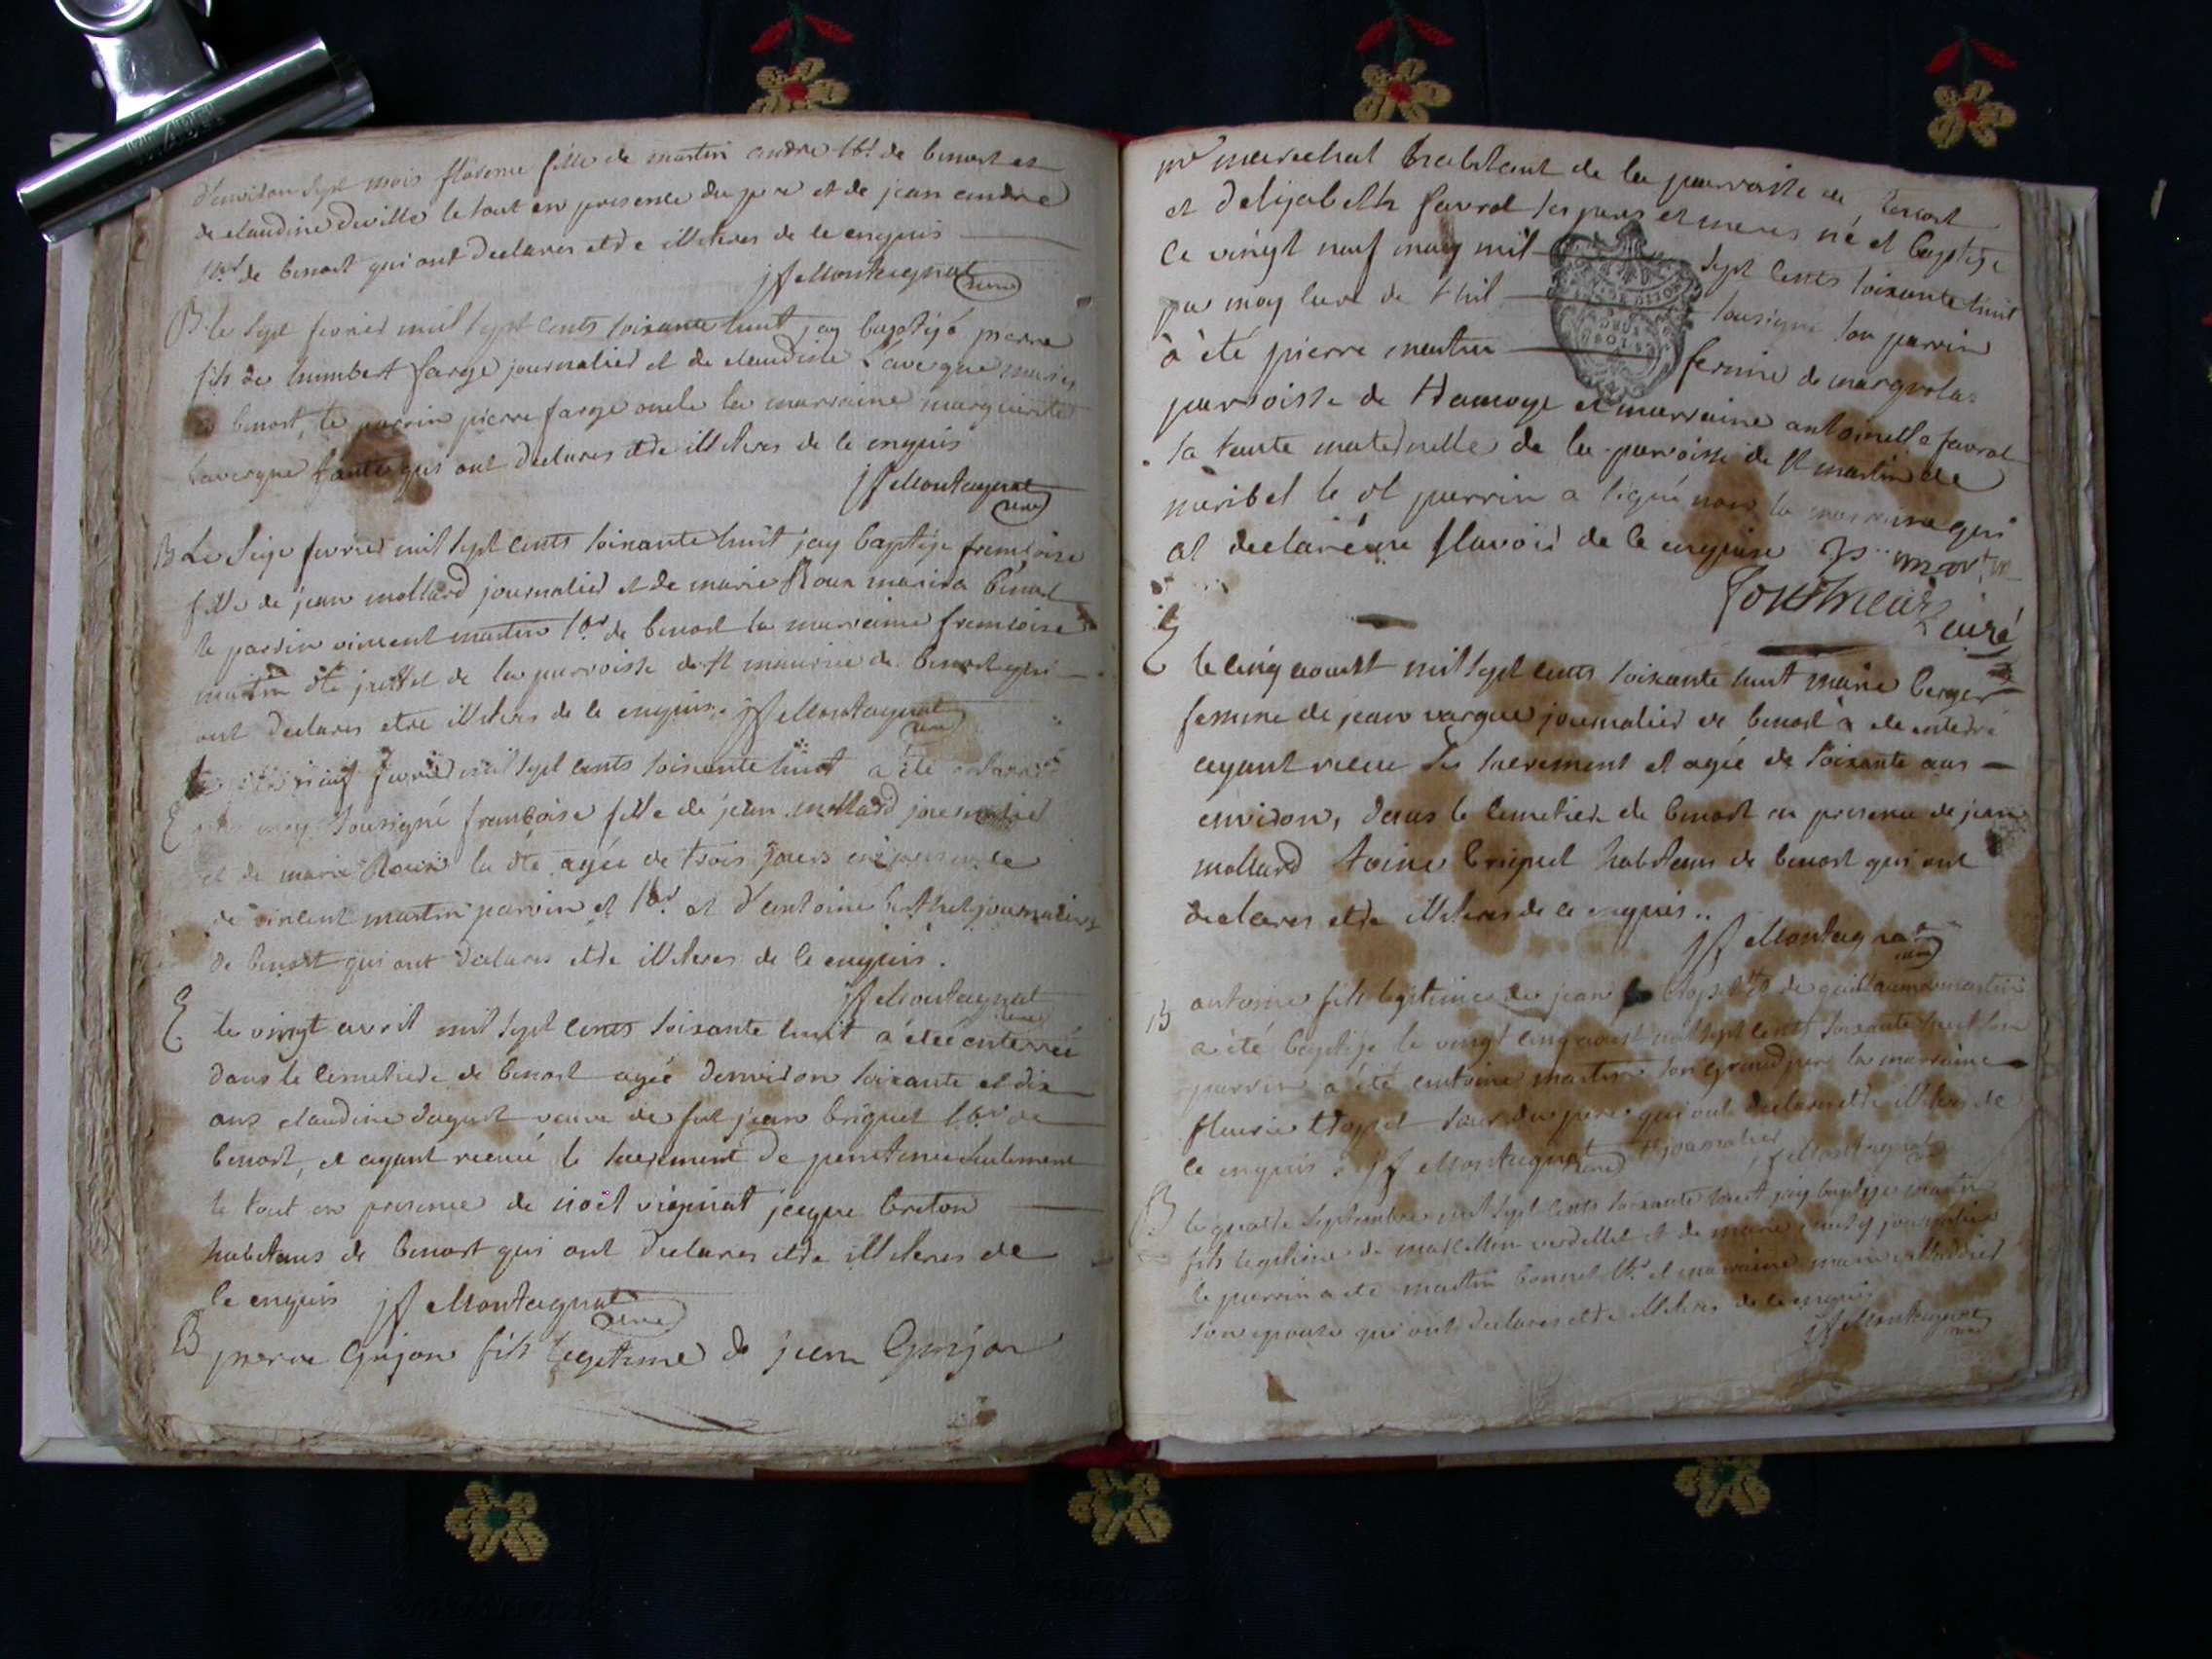 d'environ sept mois florence fille de martin andré lbr de benost et
de claudine deville le tout en presence du pere et de jean andré
lbr de benost qui ont declarés etre illiteres de ce enquis
jf Montagnat curé
B le sept fevrier mil sept cents soixante huit jay baptisé pierre
fils de humbert farge journalier et de claudine Lavergne mariés
benost, le parrin pierre farge oncle la marraine marguerite
Lavergne tante qui ont declarés etre illiteres de ce enquis
jf Montagnat curé
B Le seize fevrier mil sept cents soixante huit jay baptisé françoise
fille de jean mollard journalier et de marie Roux mariés a benost
le parrin vincent martin lbr de benost la marraine françoise
martin de la parroisse de st maurice de benost qui
ont declarés etre illiteres de ce enquis. jf Montagnat curé
neuf fevrier mil sept cents soixante huit a été enterré
E moy sousigné françoise fille de jean mollard journalier
et de marie Roux la dte agée de trois jours en presence
de vincent martin parrin et lbr et d'antoine berthet journaliers
de benost qui ont declarés etre illiteres de ce enquis.
jf Montagnat curé
E le vingt avril mil sept cents soixante huit a étée enterrée
dans le cimetiere de benost agée d'environ soixante et dix
ans claudine dagust veuve de fut jean briquet lbr de
benost, et ayant receue le sacrement de penitence seulement
le tout en presence de noel vieprat jacque breton
habitans de benost qui ont declarés etre illiteres de
ce enquis jf Montagnat curé
B pierre Gujon fils legitime de jean Gujon
mr marechal habitant de la parroisse de benost
et d'elizabeth favrot ses peres et meres né et baptisé
le vingt neuf may mil sept cents soixante huit
par moy curé de thil sousigné son parrin
à été pierre martin fermier de margnolas
parroisse de tramoye et marraine antoinette favrot
sa tante maternelle de la parroisse de st martin de
miribel le dt parrin a signé non la marraine qui
at declarée ne scavoir de ce enquise P. martin
curé
E le cinq aoust mil sept cents soixante huit marie berger
femme de jean vargue journalier de benost à été enterré
ayant receue ses sacrement et agée de soixante ans
environ, dans le cimetier de benost en presence de jean
mollard toine briquet habitans de benost qui ont
declares etre illiteres de ce enquis..
jf Montagnat curé
B antoine fils legitime de jean et de guillauma martin
a été baptisé le vingt cinq aoust mil sept cents soixante huit son
parrin a été antoine martin son grand pere la marraine
fleurie soeur du pere qui ont declares etre illiteres de
ce enquis. jf Montagnat curé journalier jf Montagnat
B le quatre septembre mil sept cents soixante huit jay baptisé martin
fils legitime de verdellet et de marie journalier
le parrin a été martin bonnet lbr et marraine marie
son epouse qui ont declares etre illiteres de ce enquis
jf Montagnat curé